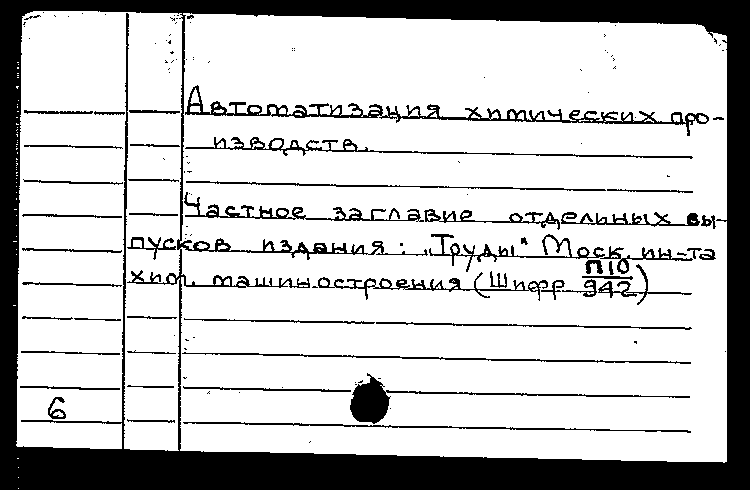 Автоматизация химических про-
изводств.
Частное заглавие отдельных вы-
пусков издания: „Труды" Моск. ин-та
хим. машиностроения (Шифр П10/942)
6